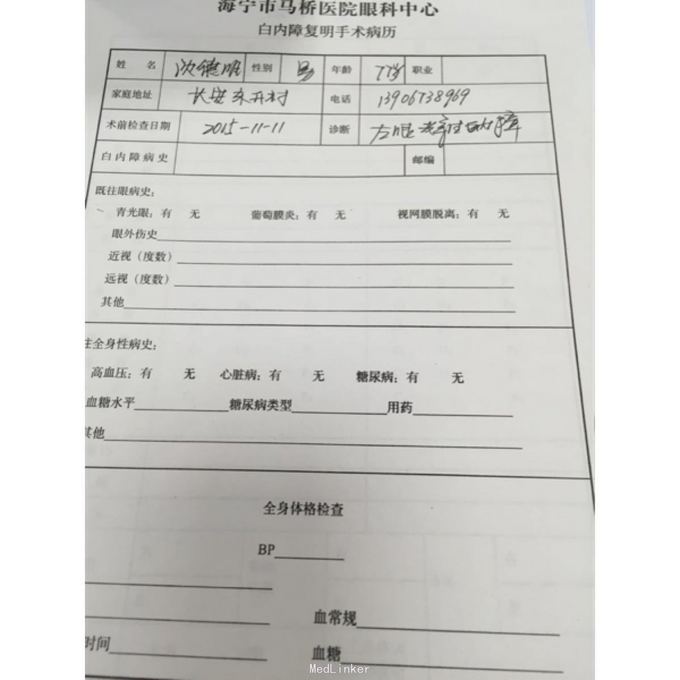 海宁市马桥医院眼科中心
白内障复明手术病历
姓 名 沈德明 性别 男 年龄 77岁 职业
家庭地址 长安 东升村 电话 13906738969
术前检查日期 2015-11-11 诊断 左眼老年性白内障
白内障病史 邮编
既往眼病史：
青光眼：有 无 葡萄膜炎：有 无 视网膜脱离：有 无
眼外伤史
近视（度数）
远视（度数）
其他
往全身性病史：
高血压：有 无 心脏病：有 无 糖尿病：有 无
血糖水平 糖尿病类型 用药
其他
全身体格检查
BP
血常规
时间 血糖
MedLinker